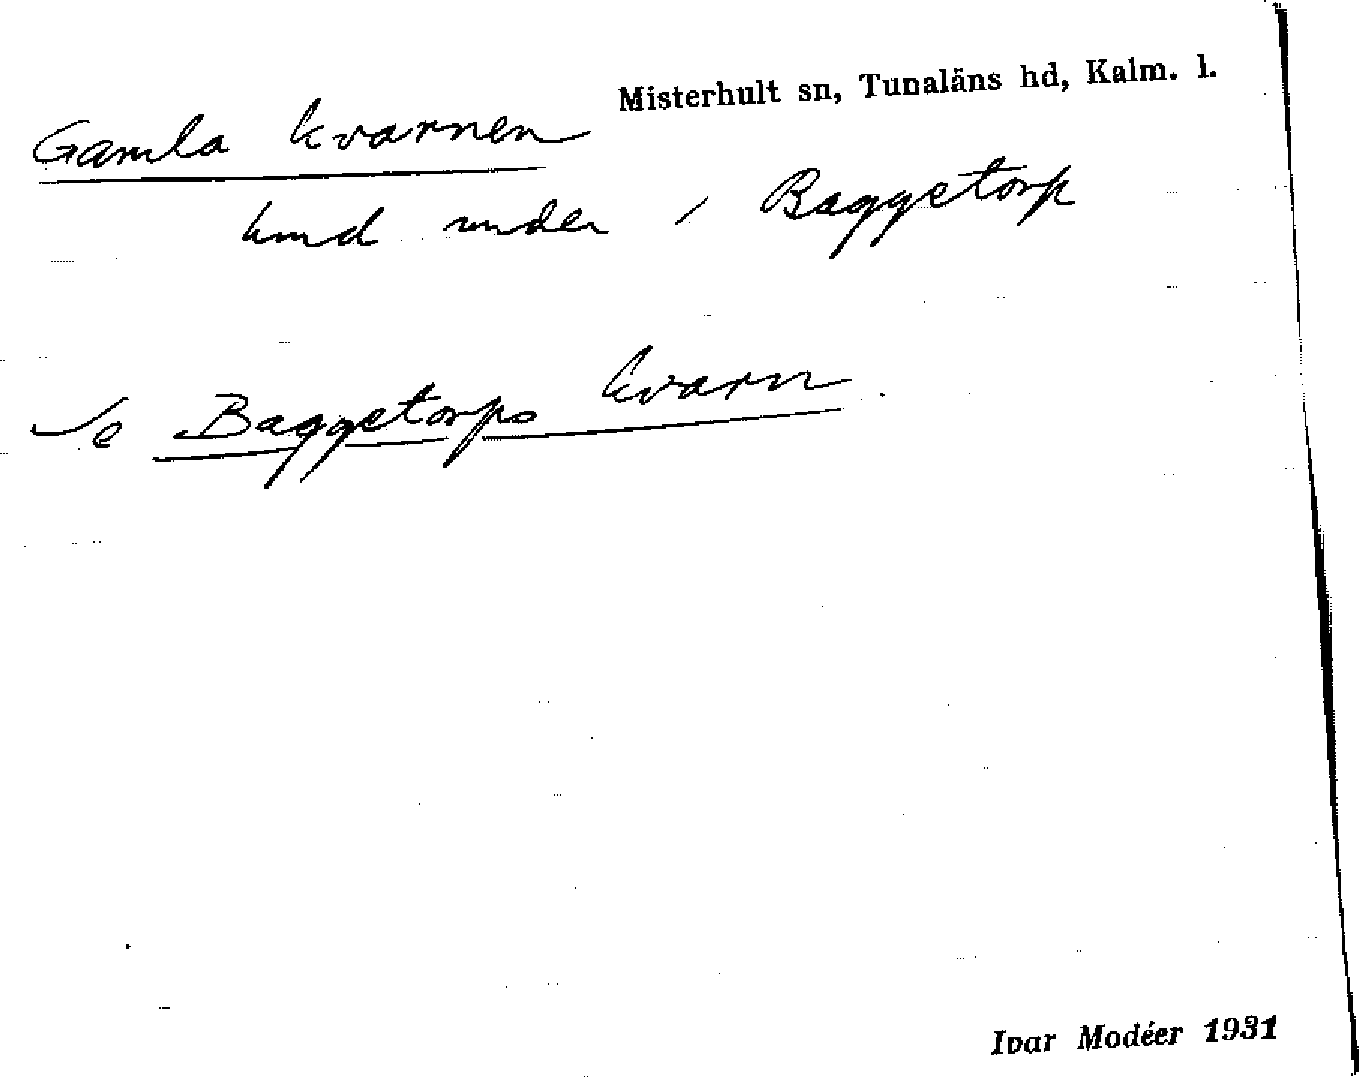 Misterhult sn, Tunaläns hd, Kalm. l.
Gamla kvarnen
lund under 1 Baggetorp
Se Baggetorps kvarn
Ivar Modéer 1931